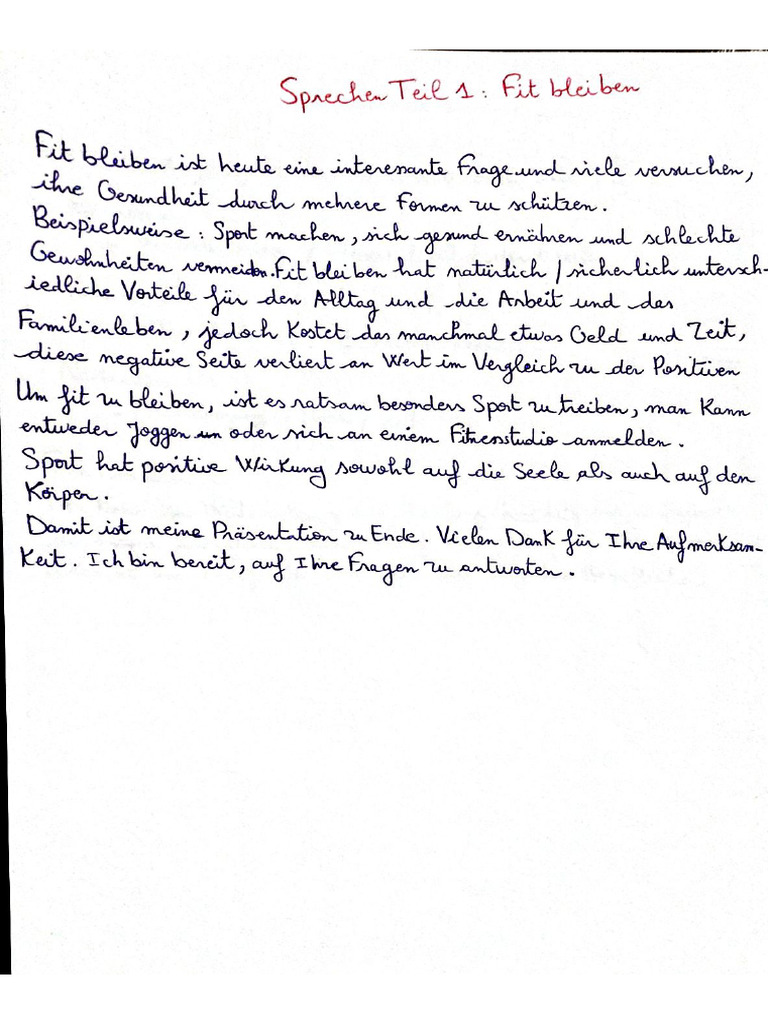 Sprechen Teil 1 : Fit bleiben
Fit bleiben ist heute eine interessante Frage und viele versuchen,
ihre Gesundheit durch mehrere Formen zu schützen.
Beispielsweise : Sport machen, sich gesund ernähren und schlechte
Gewohnheiten vermeiden. Fit bleiben hat natürlich / sicherlich untersch-
iedliche Vorteile für den Alltag und die Arbeit und das
Familienleben, jedoch Kostet das manchmal etwas Geld und Zeit,
diese negative Seite verliert an Wert im Vergleich zu der Positiven
Um fit zu bleiben, ist es ratsam besonders Sport zu treiben, man Kann
entweder Joggen oder sich an einem Fitnesstudio anmelden.
Sport hat positive Wirkung sowohl auf die Seele als auch auf den
Körper.
Damit ist meine Präsentation zu Ende. Vielen Dank für Ihre Aufmerksam-
Keit. Ich bin bereit, auf Ihre Fragen zu antworten.